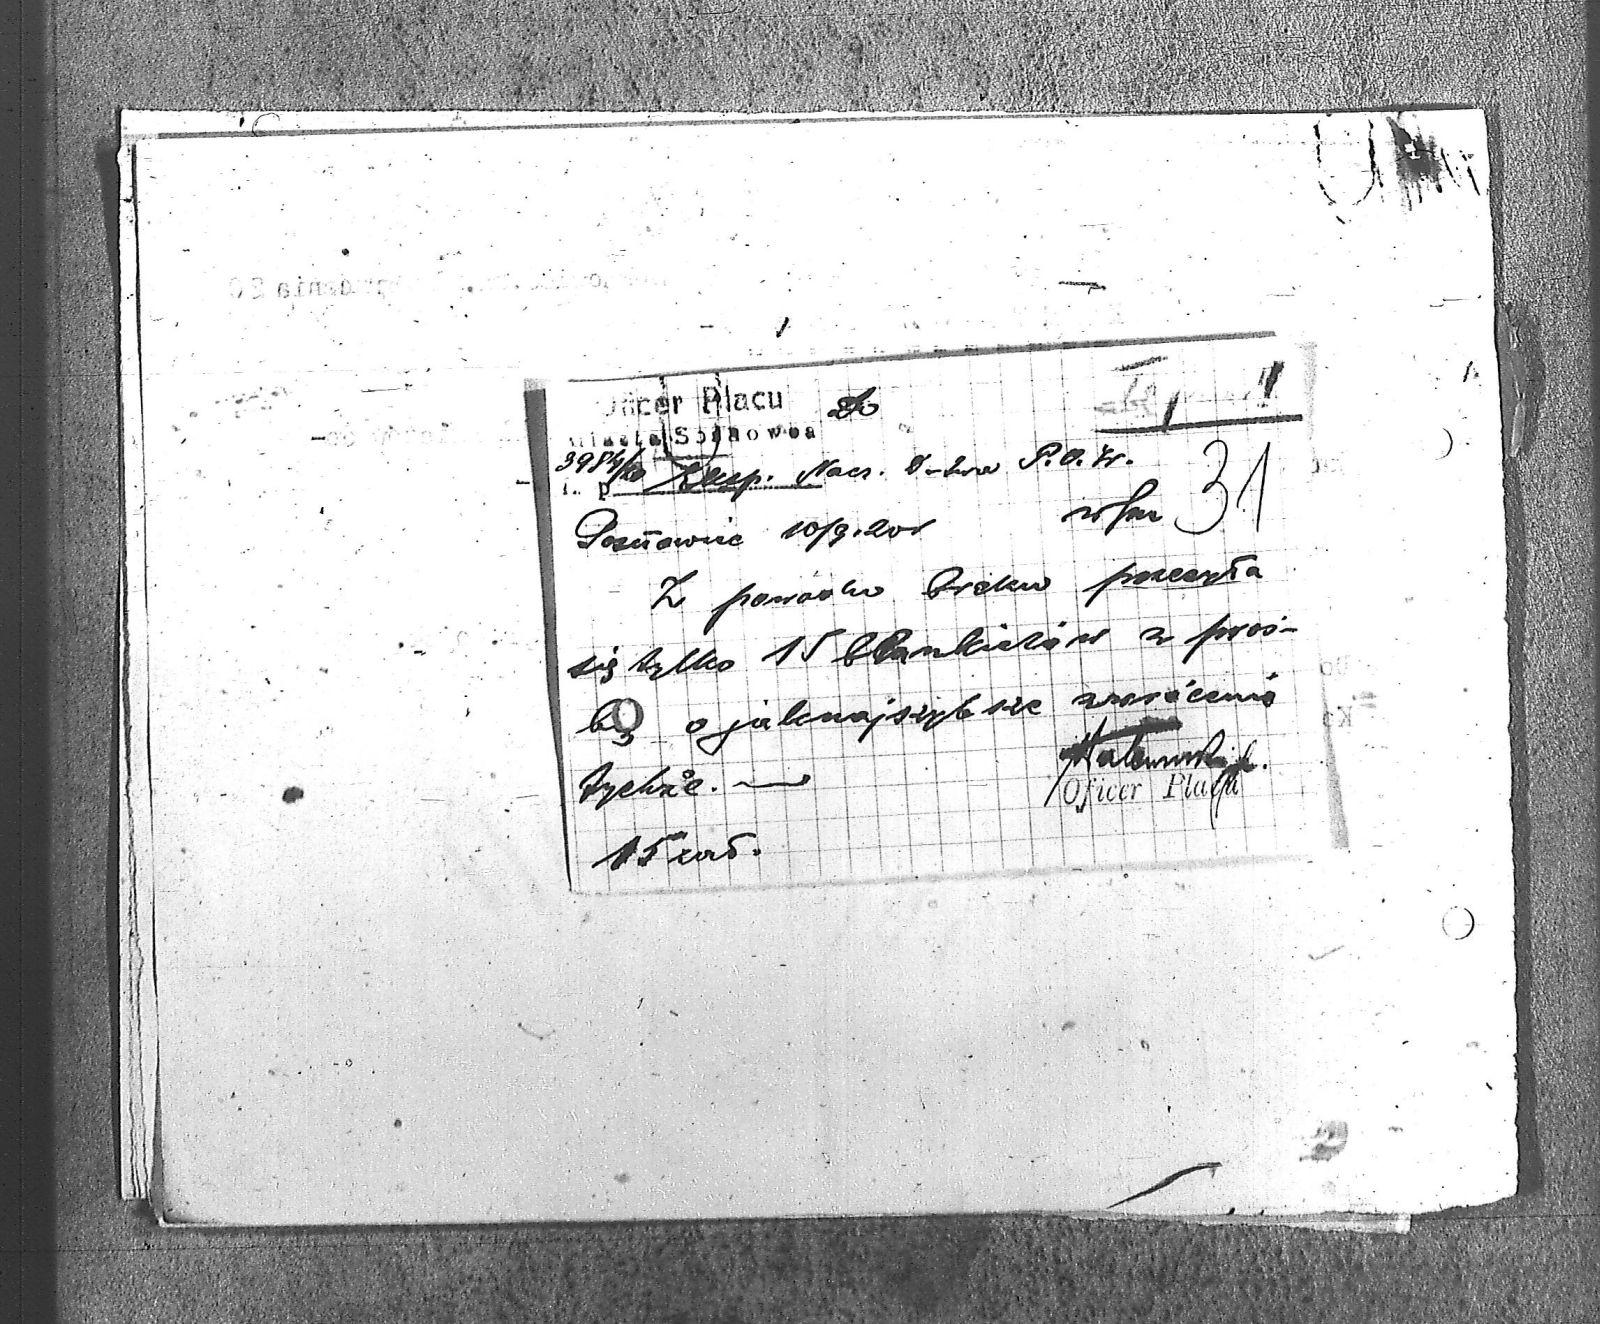 Oficer Placu Do
miasta Sosnowca
3984/20 Eksp. Nacz. D-twa P.O.W.
L. p
Sosnowiec 10/9.20r w/m 31
Z powodu braku przesyła
się tylko 15 blankietów z proś-
bą o jaknajszybsze zwrócenie
tychże.
Oficer Placu
15 zał.